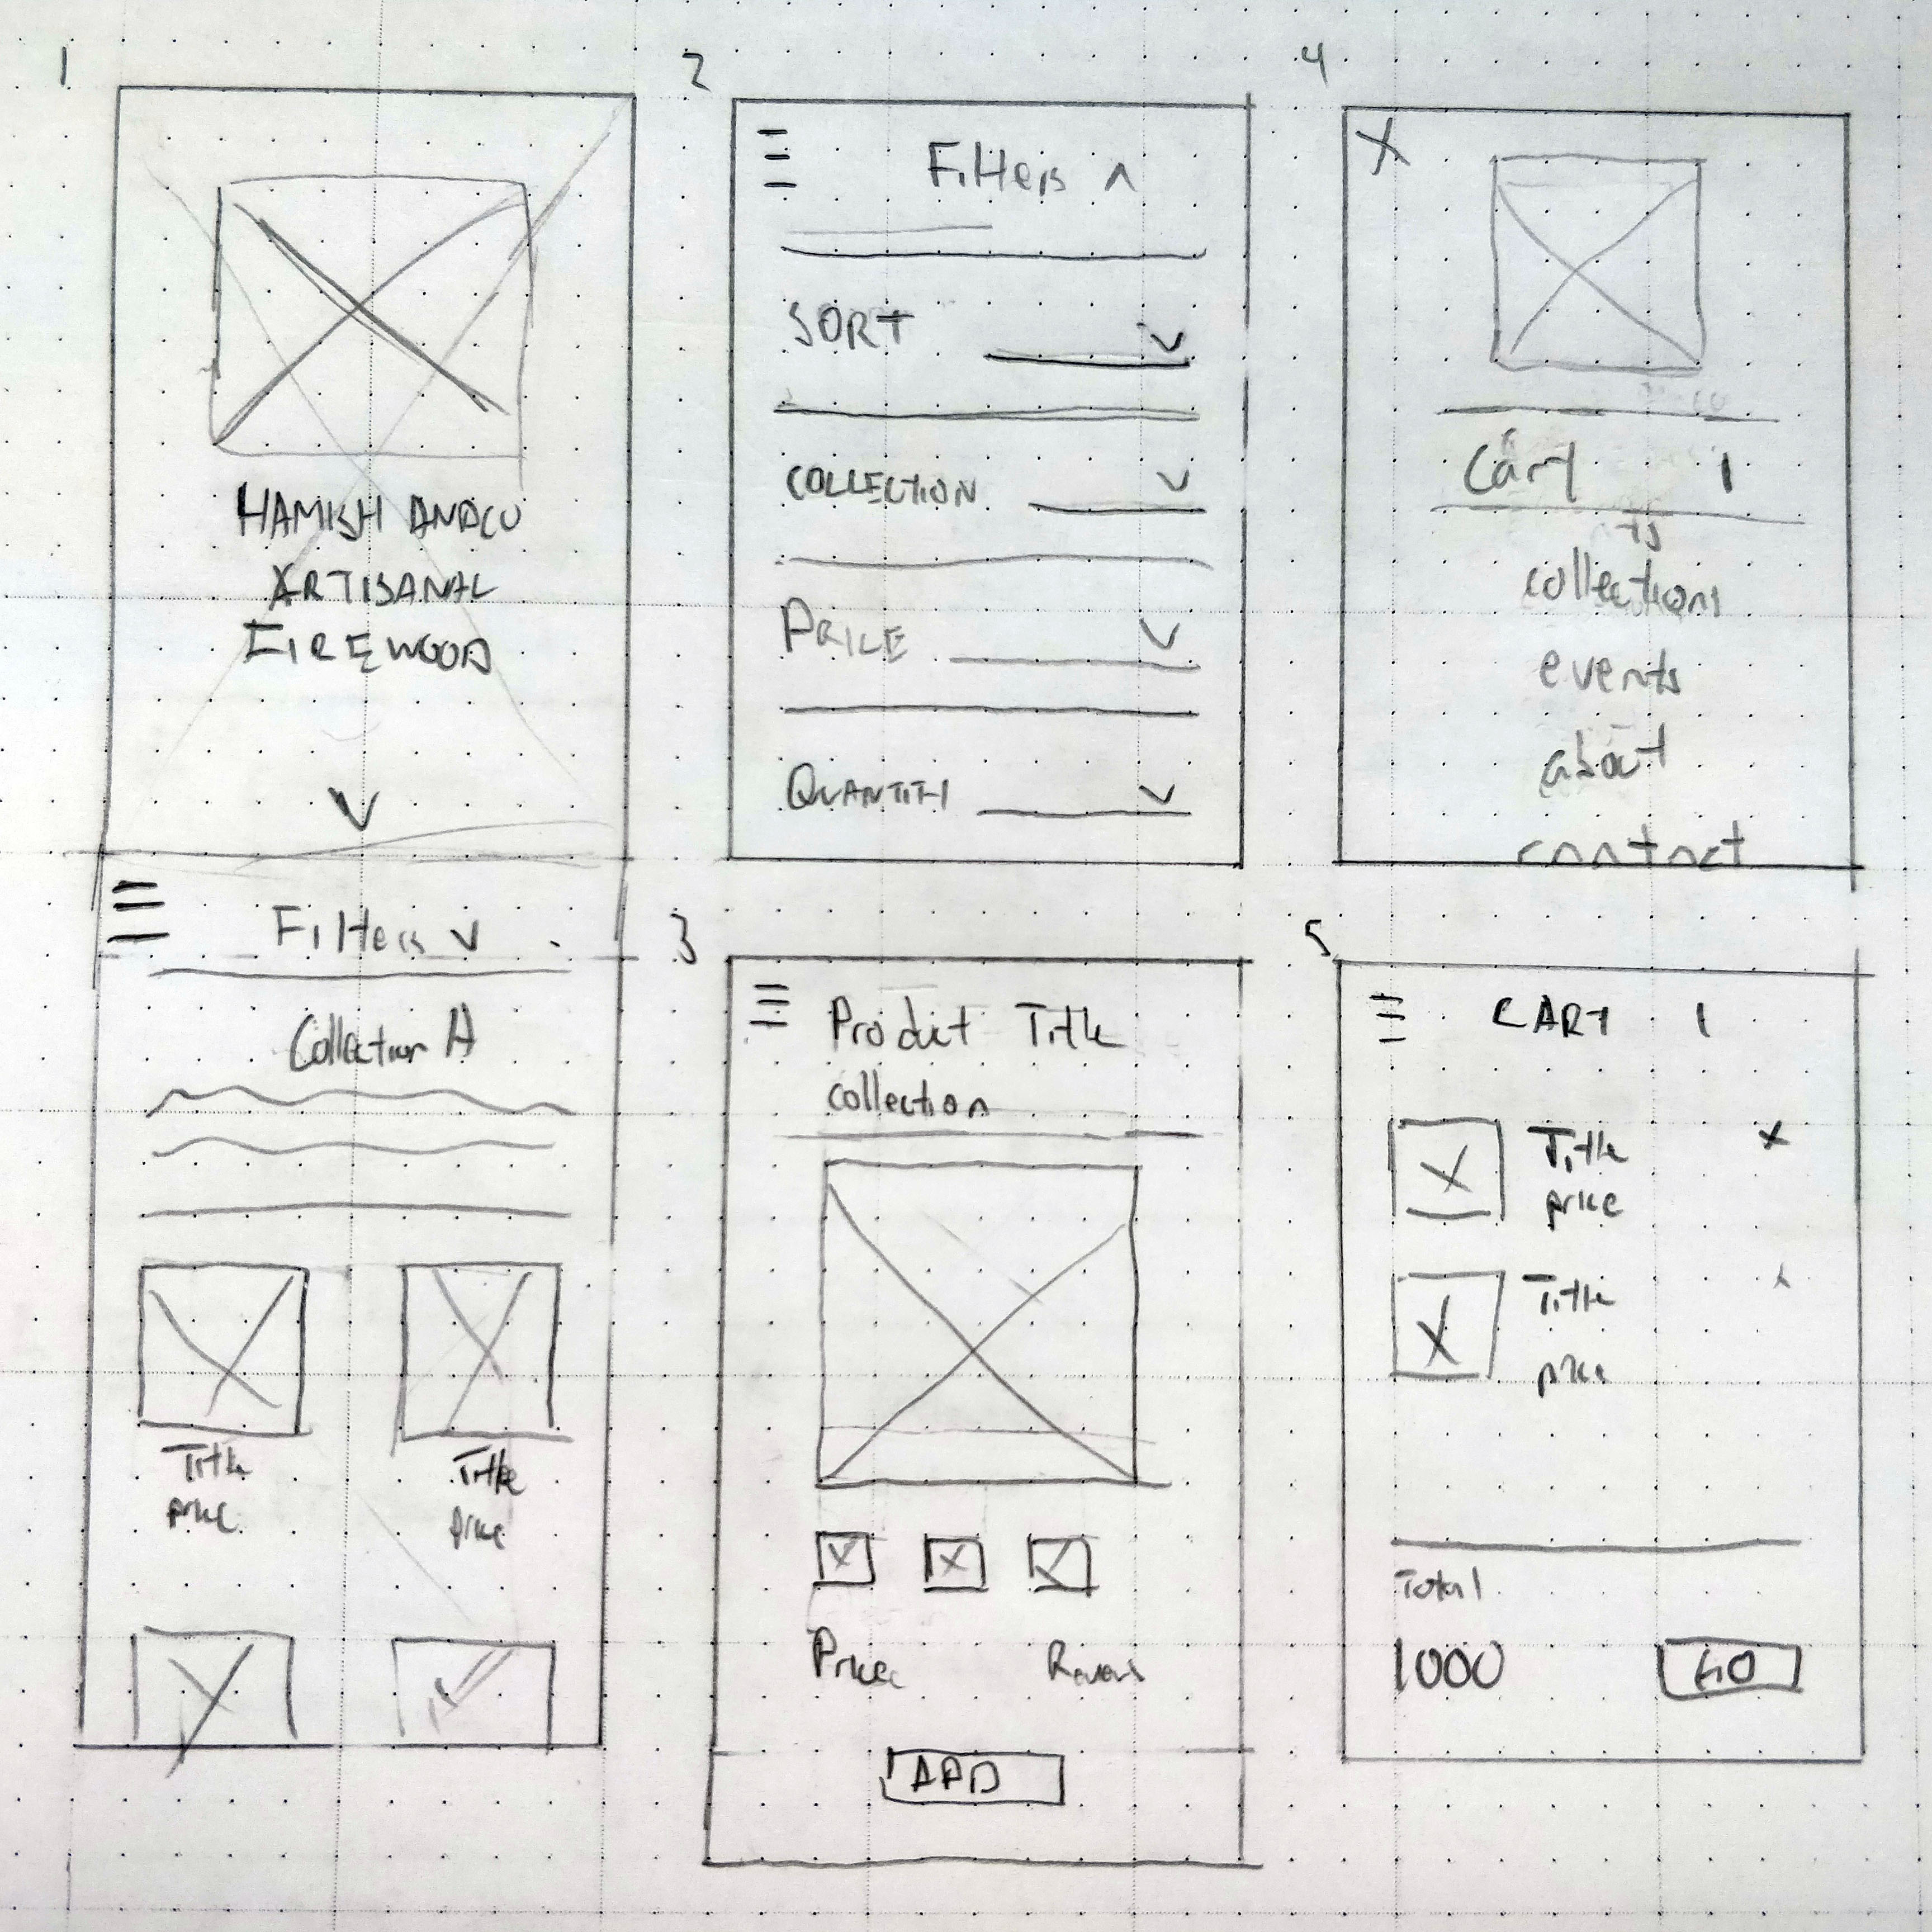 1
HAMISH ANDCO
ARTISANAL
FIREWOOD
Filters
Collection A
Title
price
Title
price
2
Filters
SORT
COLLECTION
PRICE
QUANTITY
3
Product Title
collection
Price
ADD
4
X
Cart 1
collections
events
about
contact
5
CART 1
Title
price
x
Title
price
x
Total
1000
GO